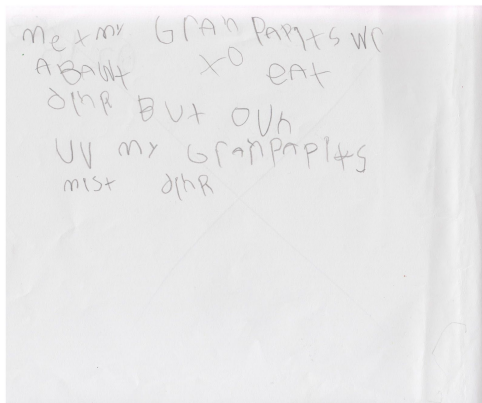 me + my GrAN PAPits Wr
ABAWt tO eAt
diNR BUt OUN
UV my GrANPAPits
mist diNR